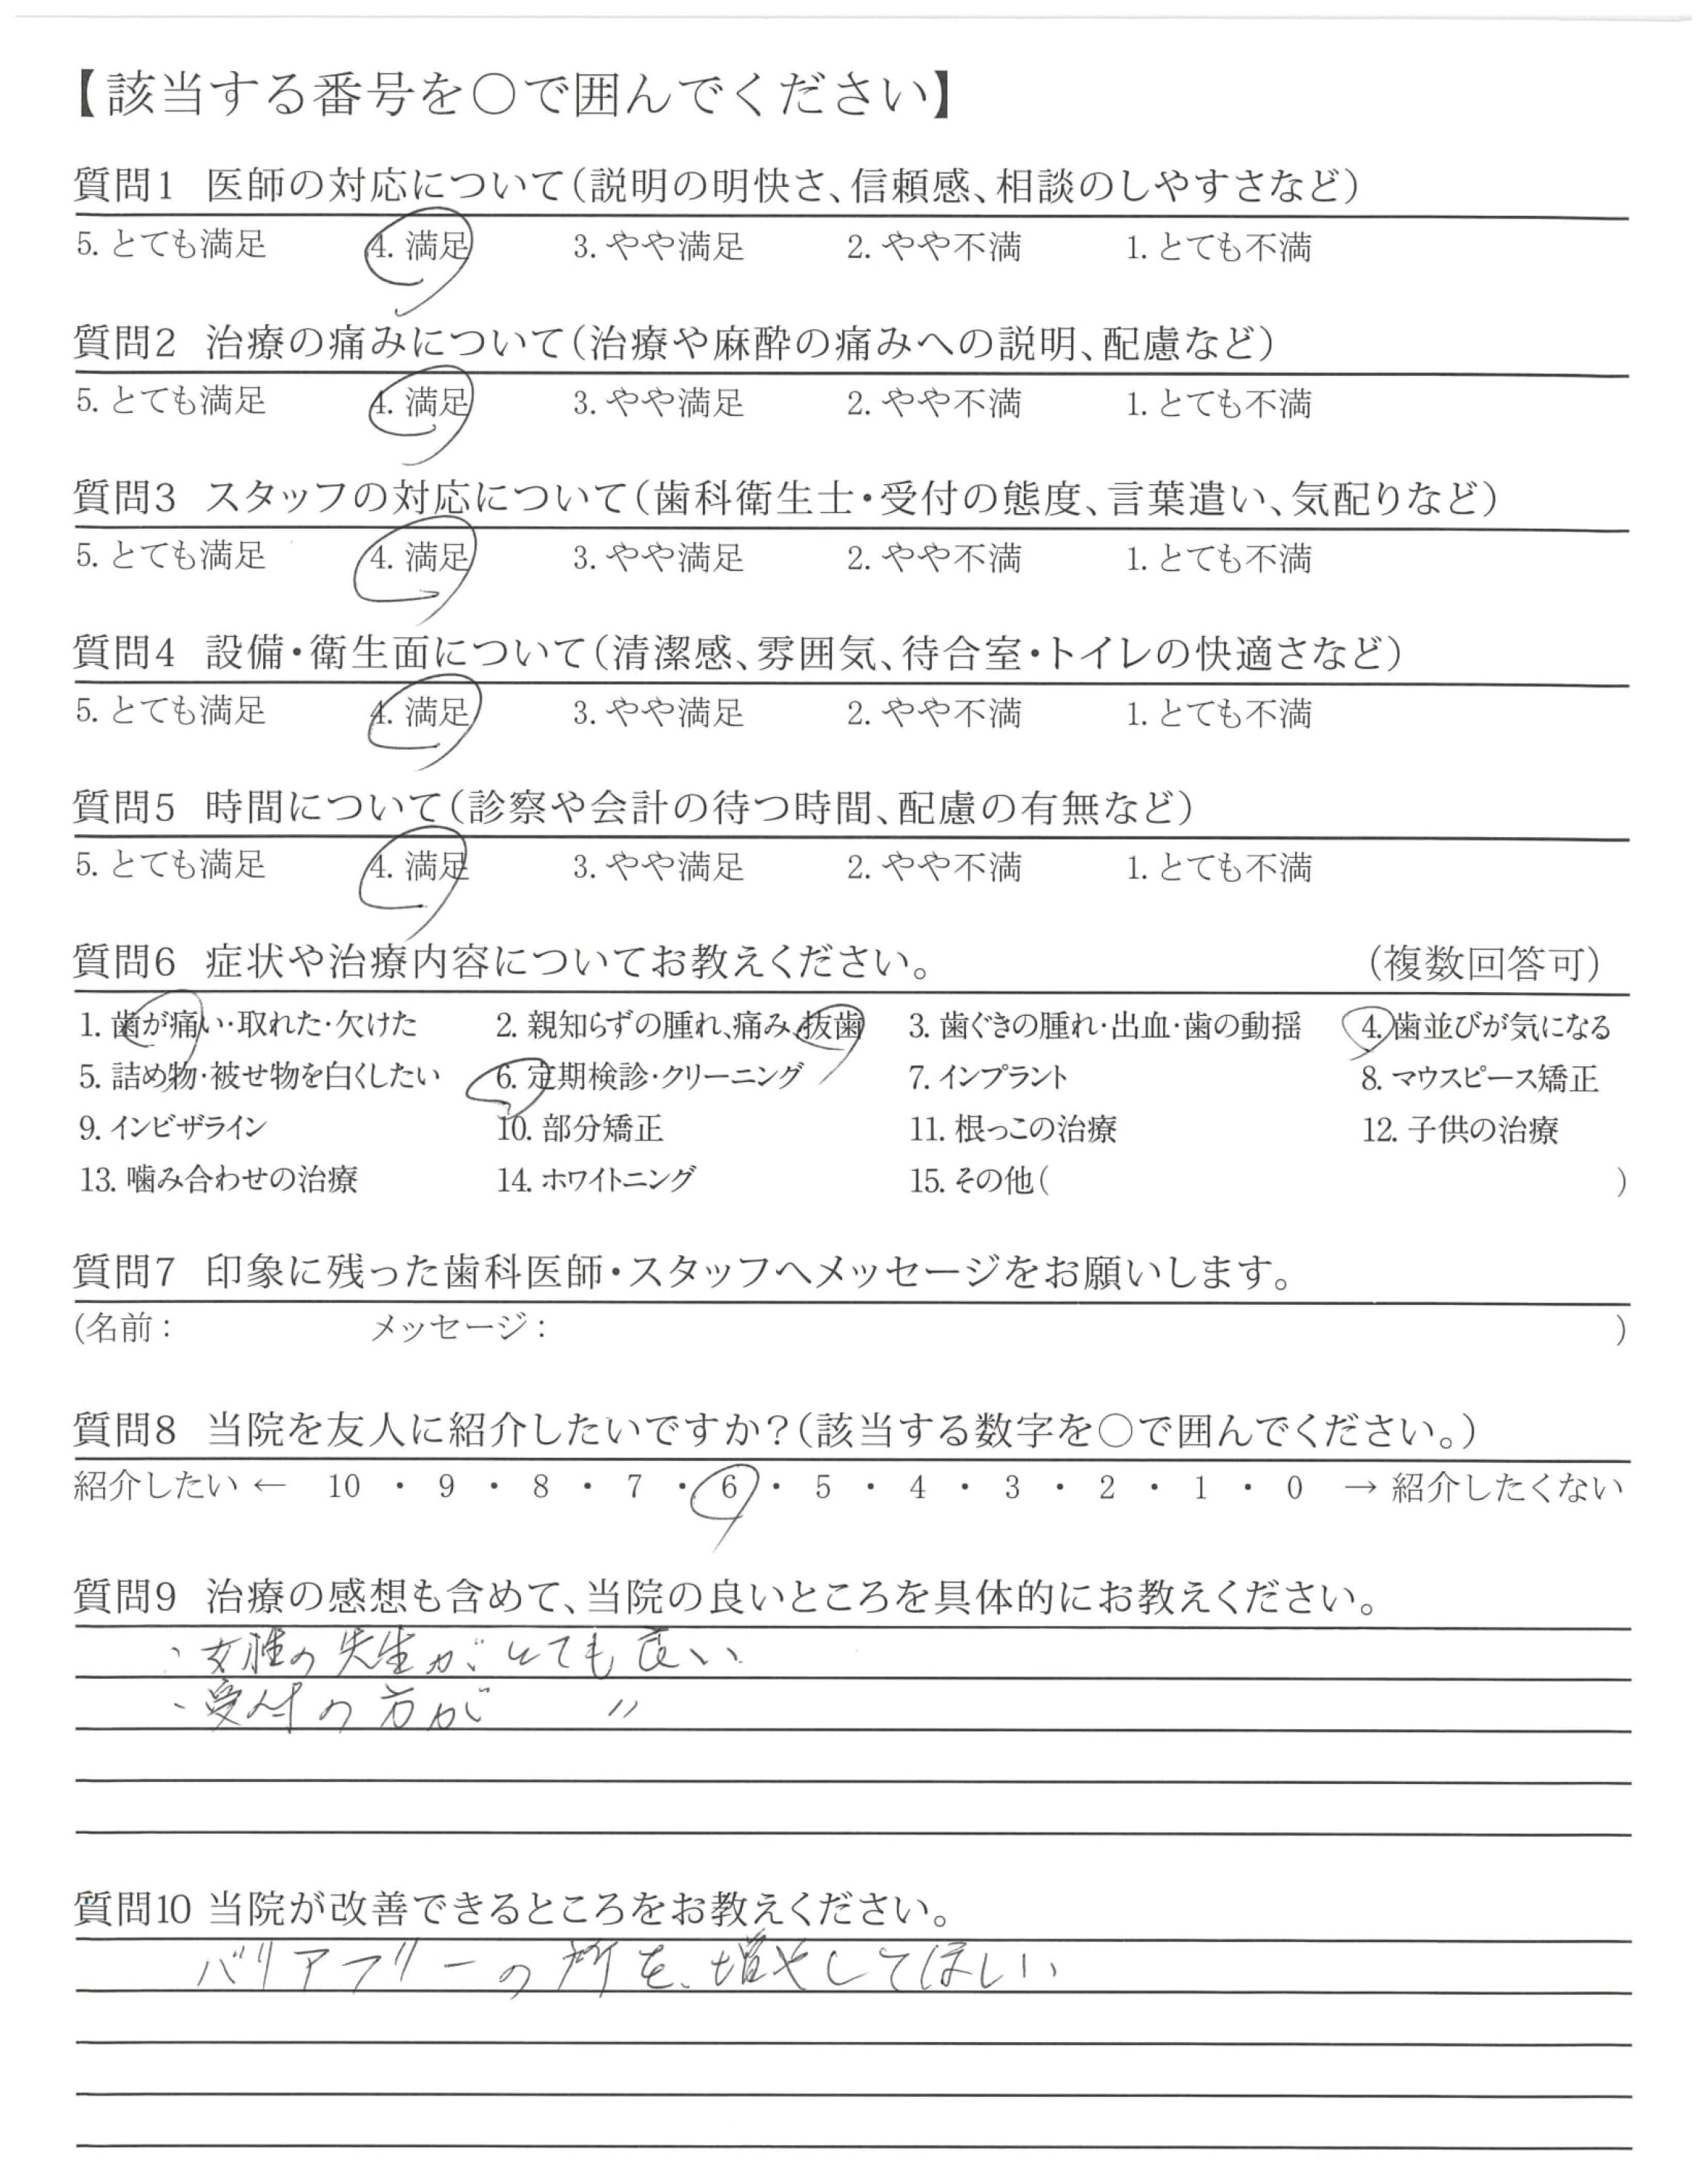 【該当する番号を○で囲んでください】
質問1 医師の対応について（説明の明快さ、信頼感、相談のしやすさなど）
5. とても満足 4. 満足 3. やや満足 2. やや不満 1. とても不満
質問2 治療の痛みについて（治療や麻酔の痛みへの説明、配慮など）
5. とても満足 4. 満足 3. やや満足 2. やや不満 1. とても不満
質問3 スタッフの対応について（歯科衛生士・受付の態度、言葉遣い、気配りなど）
5. とても満足 4. 満足 3. やや満足 2. やや不満 1. とても不満
質問4 設備・衛生面について（清潔感、雰囲気、待合室・トイレの快適さなど）
5. とても満足 4. 満足 3. やや満足 2. やや不満 1. とても不満
質問5 時間について（診察や会計の待つ時間、配慮の有無など）
5. とても満足 4. 満足 3. やや満足 2. やや不満 1. とても不満
質問6 症状や治療内容についてお教えください。 （複数回答可）
1. 歯が痛い・取れた・欠けた 2. 親知らずの腫れ、痛み、抜歯 3. 歯ぐきの腫れ・出血・歯の動揺 4. 歯並びが気になる
5. 詰め物・被せ物を白くしたい 6. 定期検診・クリーニング 7. インプラント 8. マウスピース矯正
9. インビザライン 10. 部分矯正 11. 根っこの治療 12. 子供の治療
13. 噛み合わせの治療 14. ホワイトニング 15. その他（ ）
質問7 印象に残った歯科医師・スタッフへメッセージをお願いします。
（名前： メッセージ： ）
質問8 当院を友人に紹介したいですか？（該当する数字を○で囲んでください。）
紹介したい ← 10 ・ 9 ・ 8 ・ 7 ・ 6 ・ 5 ・ 4 ・ 3 ・ 2 ・ 1 ・ 0 → 紹介したくない
質問9 治療の感想も含めて、当院の良いところを具体的にお教えください。
・女性の先生が、とても良い
・受付の方が 〃
質問10 当院が改善できるところをお教えください。
バリアフリーの所を、増やしてほしい